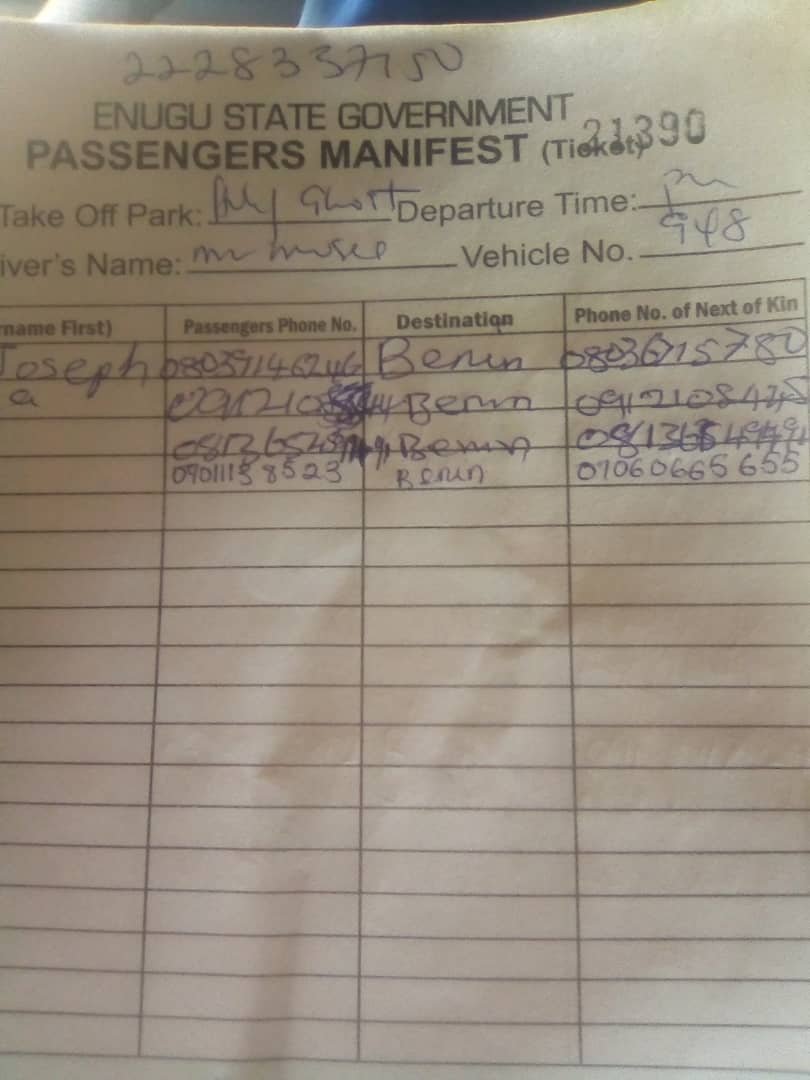 2228337150
ENUGU STATE GOVERNMENT
PASSENGERS MANIFEST (Ticket) 21390
Take Off Park: Holy Ghost Departure Time: pm
iver's Name: mr Vehicle No. 948
name First) Passengers Phone No. Destination Phone No. of Next of Kin
Joseph Benin 08036715780
a Benin
Benin
09011138523 Benin 07060665655